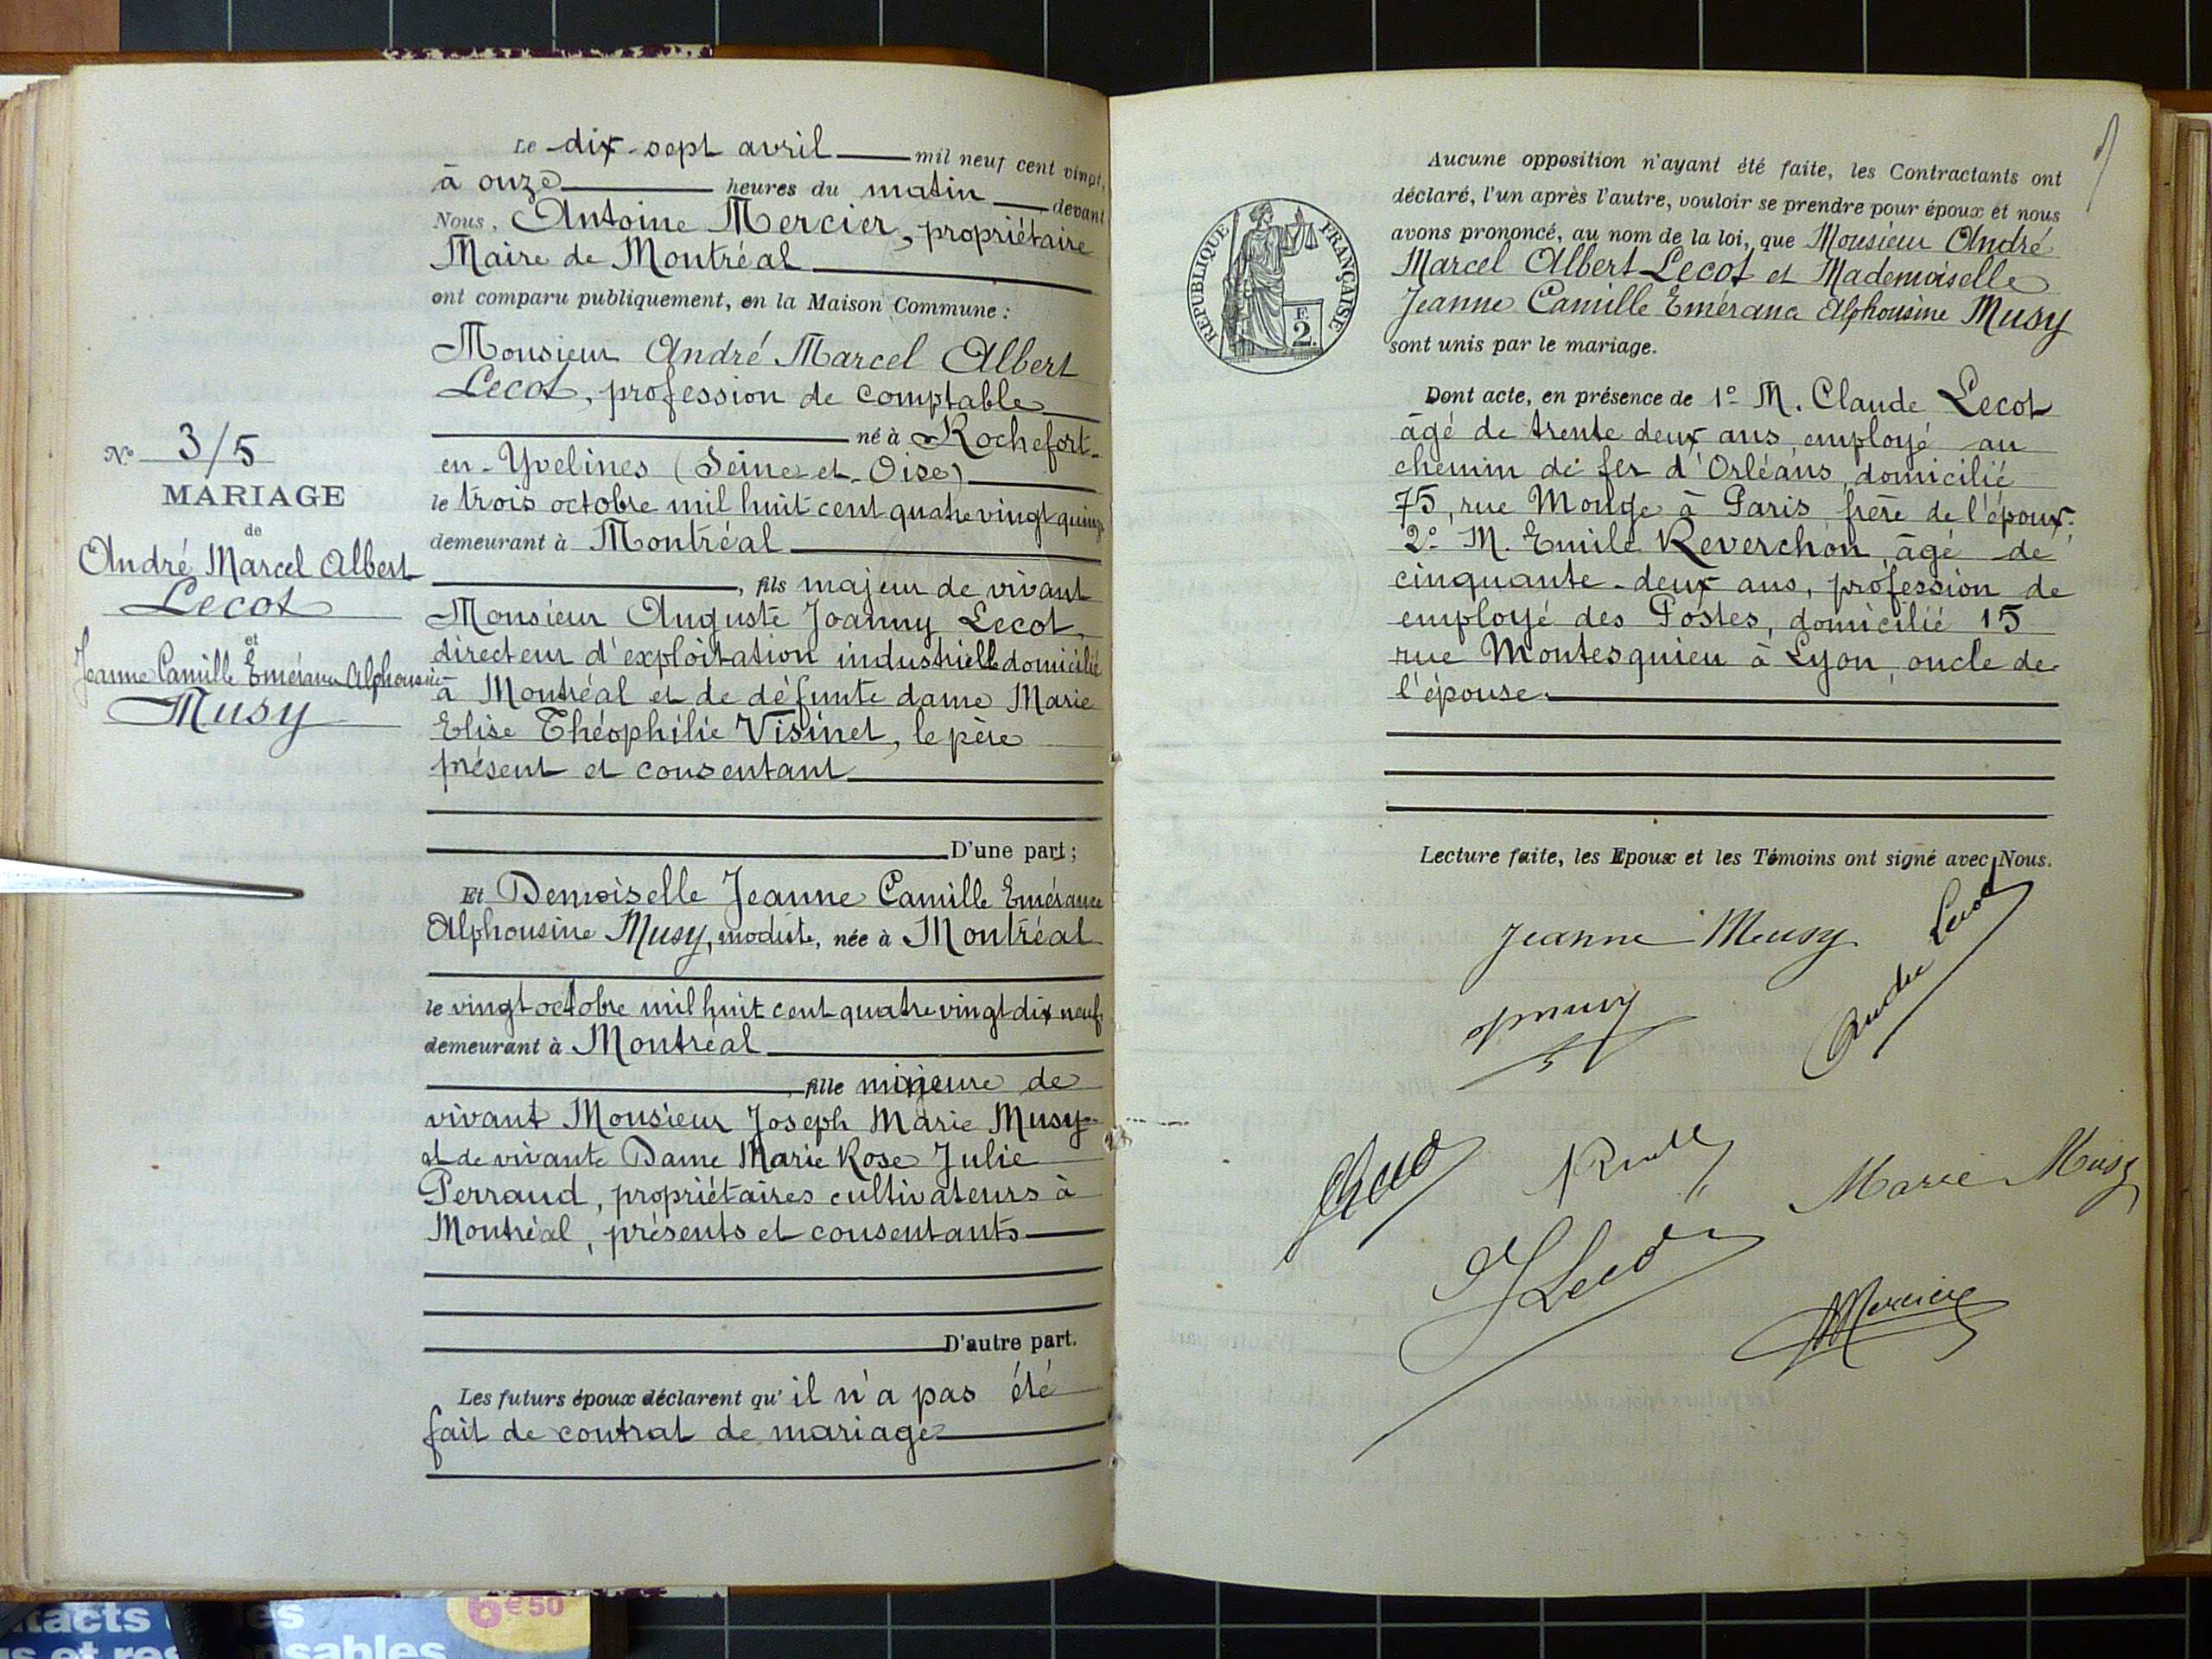 Le dix-sept avril mil neuf cent vingt,
à onze heures du matin devant
Nous, Antoine Mercier, propriétaire
Maire de Montréal
ont comparu publiquement, en la Maison Commune :
Monsieur André Marcel Albert
Lecot, profession de comptable
né à Rochefort-
en-Yvelines (Seine et Oise)
le trois octobre mil huit cent quatre vingt quinze
demeurant à Montréal
, fils majeur de vivant
Monsieur Auguste Joanny Lecot,
directeur d'exploitation industrielle domicilié
à Montréal et de défunte dame Marie
Elise Théophilie Visinet, le père
présent et consentant
D'une part ;
Et Demoiselle Jeanne Camille Emérance
Alphonsine Musy, modiste, née à Montréal
le vingt octobre mil huit cent quatre vingt dix neuf
demeurant à Montréal
, fille mineure de
vivant Monsieur Joseph Marie Musy
et de vivante Dame Marie Rose Julie
Perraud, propriétaires cultivateurs à
Montréal, présents et consentants
D'autre part.
Les futurs époux déclarent qu'il n'a pas été
fait de contrat de mariage
No 3/5
MARIAGE
de
André Marcel Albert
Lecot
et
Jeanne Camille Emérance Alphonsine
Musy
RÉPUBLIQUE FRANÇAISE
F.
2.
Aucune opposition n'ayant été faite, les Contractants ont
déclaré, l'un après l'autre, vouloir se prendre pour époux et nous
avons prononcé, au nom de la loi, que Monsieur André
Marcel Albert Lecot et Mademoiselle
Jeanne Camille Emérance Alphonsine Musy
sont unis par le mariage.
Dont acte, en présence de 1º M. Claude Lecot
âgé de trente deux ans, employé au
chemin de fer d'Orléans, domicilié
75, rue Monge à Paris, frère de l'époux.
2º M. Emile Reverchon, âgé de
cinquante-deux ans, profession de
employé des Postes, domicilié 15
rue Montesquieu à Lyon, oncle de
l'épouse.
Lecture faite, les Epoux et les Témoins ont signé avec Nous.
Jeanne Musy
André Lecot
Marie Musy
J Lecot
Mercier
6€50